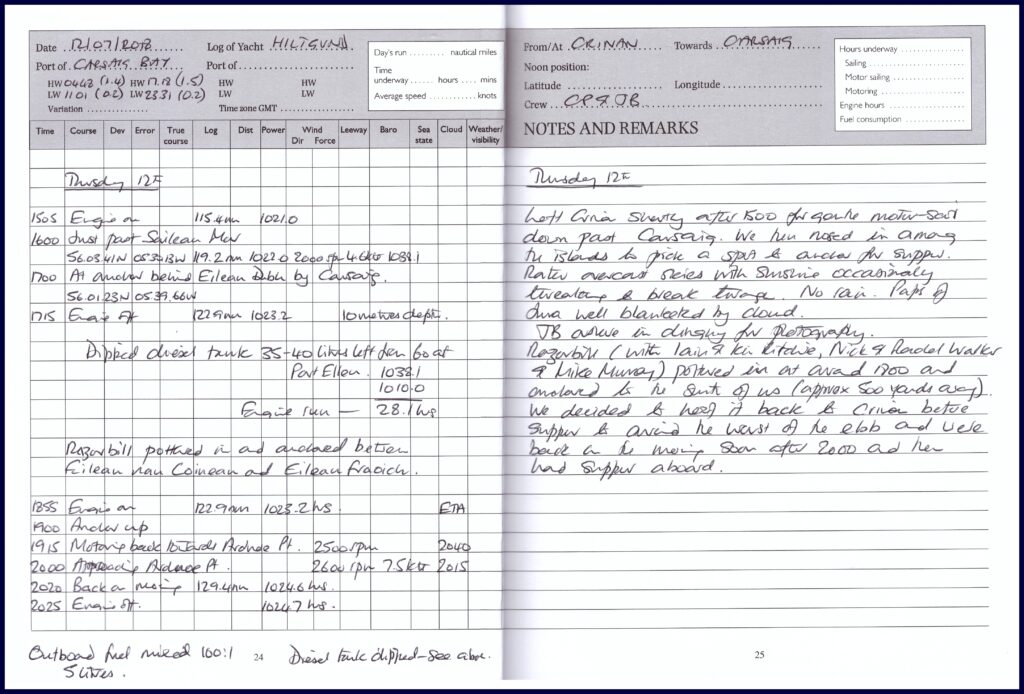 Date 12/07/2018 Log of Yacht HILTGUND.
Port of CARSAIG BAY Port of
HW 0443 (1.4) HW 1718 (1.5) HW HW
LW 1101 (0.2) LW 2331 (0.2) LW LW
Variation Time zone GMT
Day's run nautical miles
Time
underway hours mins
Average speed knots
Time Course Dev Error True course Log Dist Power Wind Dir Force Leeway Baro Sea state Cloud Weather/visibility
Thursday 12th
1505 Engine on 115.4nm 1021.0
1600 Just past Sailean Mor
56.03.41N 05 3 W 119.2nm 1022.0 2000rpm 4.6kts 1038.1
1700 At anchor behind Eilean Dubh by Carsaig.
56.01.23N 05.39.66W
1715 Engine off 122.9nm 1023.2 10 metres depth.
Dipped diesel tank 35-40 litres left from 60 at
Port Ellen. 1038.1
1010.0
Engine run — 28.1 hrs
Razorbill pottered in and anchored between
Eilean nan Coinean and Eilean Fraoich.
1855 Engine on 122.9nm 1023.2 hrs. ETA
1900 Anchor up
1915 Motoring back towards Ardnoe Pt. 2500rpm 2040
2000 Approaching Ardnoe Pt. 2600rpm 7.5kts 2015
2020 Back on mooring 129.4nm 1024.6 hrs.
2025 Engine off. 1024.7 hrs.
Outboard fuel mixed 100:1 24 Diesel tank dipped - see above.
5 litres.
From/At CRINAN Towards CARSAIG
Noon position:
Latitude Longitude
Crew CP & JB
NOTES AND REMARKS
Hours underway
Sailing
Motor sailing
Motoring
Engine hours
Fuel consumption
Thursday 12th
Left Crinan shortly after 1500 for gentle motor-sail
down past Carsaig. We then nosed in among
the islands to pick a spot to anchor for supper.
Rather overcast skies with sunshine occasionally
threatening to break through. No rain. Paps of
Jura well blanketed by cloud.
JB in dinghy for photography.
Razorbill (with Iain & Kim Ritchie, Nick & Rachel Walker
& Mike Murray) pottered in at around 1800 and
anchored to the south of us (approx 500 yards away).
We decided to head it back to Crinan before
supper to avoid the worst of the ebb and were
back on the mooring soon after 2000 and then
had supper aboard.
25